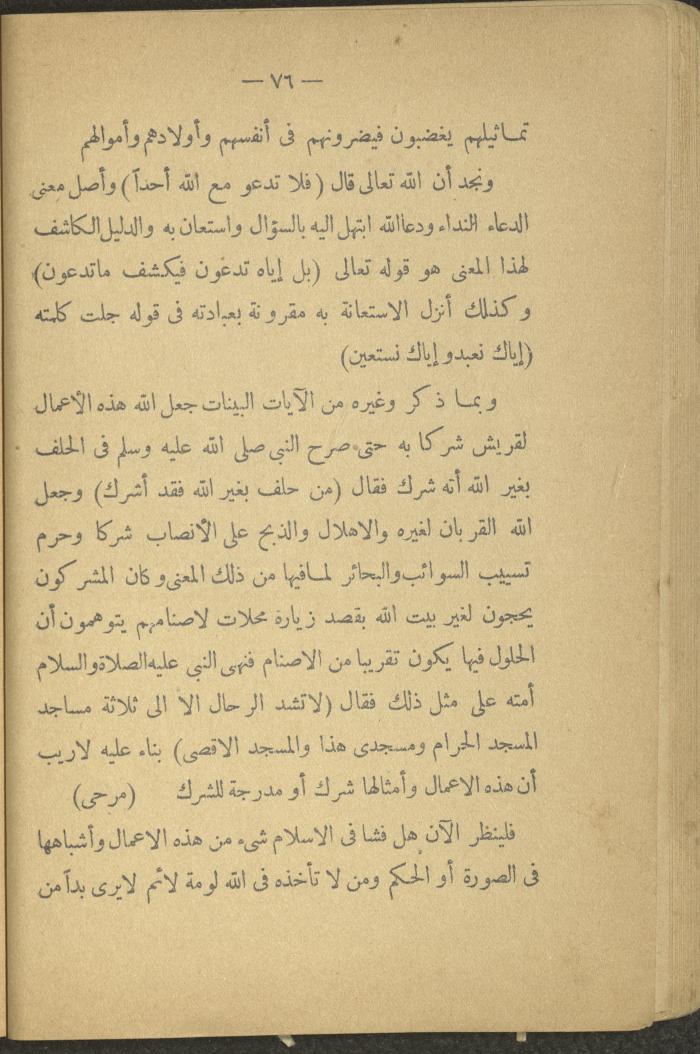 — ٧٦ —
تماثيلهم يغضبون فيضرونهم فى أنفسهم وأولادهم وأموالهم
ونجد أن الله تعالى قال (فلا تدعو مع الله أحداً) وأصل معنى
الدعاء النداء ودعا الله ابتهل اليه بالسؤال واستعان به والدليل الكاشف
لهذا المعنى هو قوله تعالى (بل إياه تدعون فيكشف ماتدعون)
وكذلك أنزل الاستعانة به مقرونة بعبادته فى قوله جلت كلمته
(إياك نعبد وإياك نستعين)
وبما ذكر وغيره من الآيات البينات جعل الله هذه الأعمال
لقريش شركا به حتى صرح النبى صلى الله عليه وسلم فى الحلف
بغير الله أنه شرك فقال (من حلف بغير الله فقد أشرك) وجعل
الله القربان لغيره والاهلال والذبح على الأنصاب شركا وحرم
تسييب السوائب والبحائر لما فيها من ذلك المعنى وكان المشركون
يحجون لغير بيت الله بقصد زيارة محلات لاصنامهم يتوهمون أن
الحلول فيها يكون تقريبا من الاصنام فنهى النبى عليه الصلاة والسلام
أمته على مثل ذلك فقال (لا تشد الرحال الا الى ثلاثة مساجد
المسجد الحرام ومسجدى هذا والمسجد الاقصى) بناء عليه لاريب
أن هذه الاعمال وأمثالها شرك أو مدرجة للشرك (مرحى)
فلينظر الآن هل فشا فى الاسلام شىء من هذه الاعمال وأشباهها
فى الصورة أو الحكم ومن لا تأخذه فى الله لومة لائم لايرى بداً من